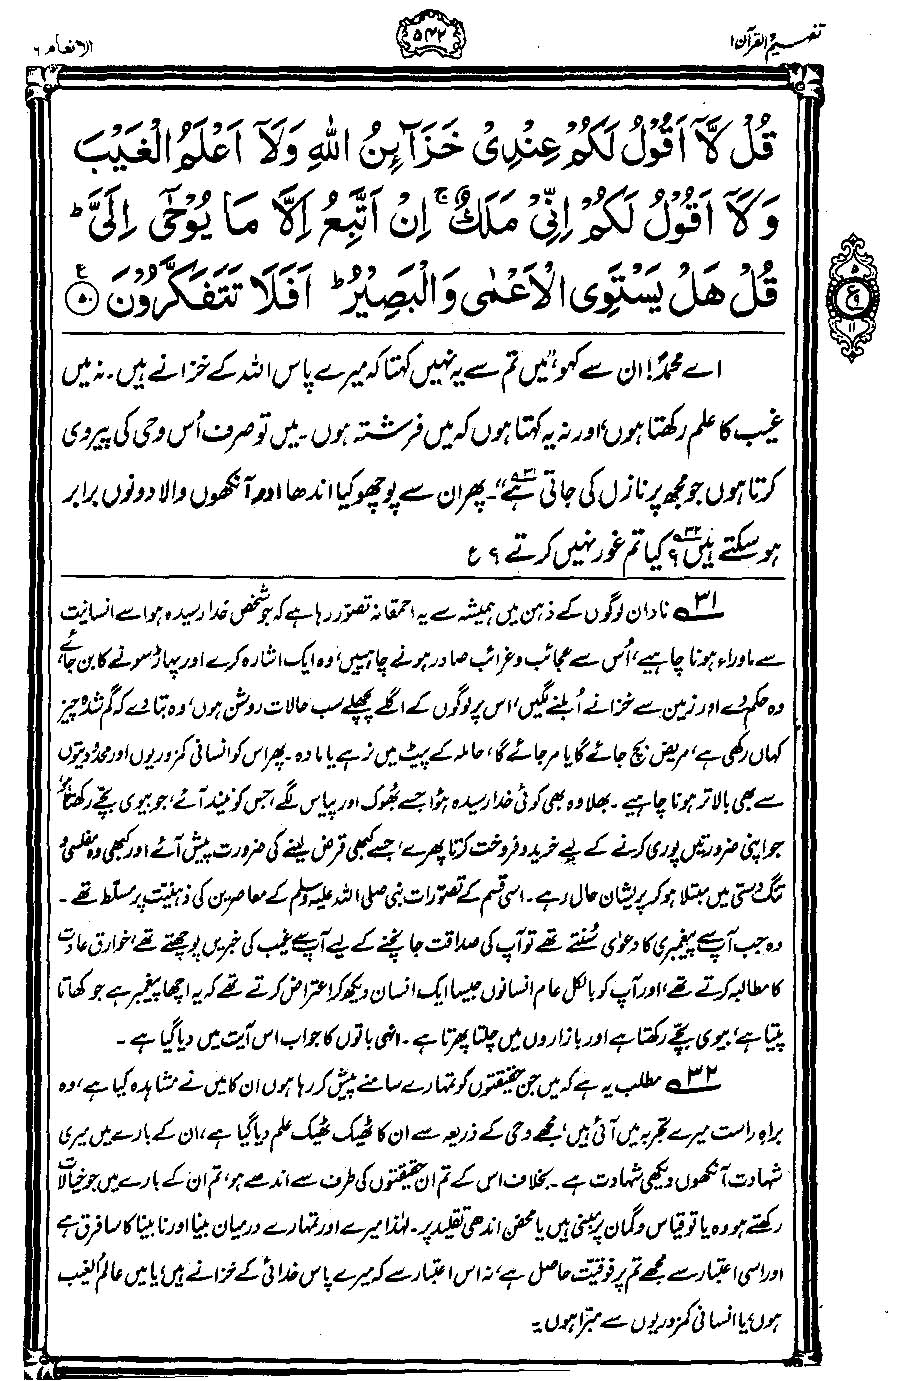 تفہیم القرآن ۱
۵۴۲
الانعام ۶
قُلْ لَّآ اَقُوْلُ لَكُمْ عِنْدِیْ خَزَآئِنُ اللّٰهِ وَلَآ اَعْلَمُ الْغَیْبَ
وَلَآ اَقُوْلُ لَكُمْ اِنِّیْ مَلَكٌ ۚ اِنْ اَتَّبِعُ اِلَّا مَا یُوْحٰٓی اِلَیَّ ؕ
قُلْ هَلْ یَسْتَوِی الْاَعْمٰی وَالْبَصِیْرُ ؕ اَفَلَا تَتَفَكَّرُوْنَ ﴿۵۰﴾ ع
۵
ع ۹
۱۱
اے محمدؐ! ان سے کہو، ”میں تم سے یہ نہیں کہتا کہ میرے پاس اللہ کے خزانے ہیں۔ نہ میں
غیب کا علم رکھتا ہوں، اور نہ یہ کہتا ہوں کہ میں فرشتہ ہوں۔ میں تو صرف اُس وحی کی پیروی
کرتا ہوں جو مجھ پر نازل کی جاتی ہے۳۱“۔ پھر ان سے پوچھو کیا اندھا اور آنکھوں والا دونوں برابر
ہو سکتے ہیں۳۲؟ کیا تم غور نہیں کرتے؟ ع
۳۱ نادان لوگوں کے ذہن میں ہمیشہ سے یہ احمقانہ تصوّر رہا ہے کہ جو شخص خدا رسیدہ ہو اسے انسانیت
سے ماوراء ہونا چاہیے، اُس سے عجائب و غرائب صادر ہونے چاہییں، وہ ایک اشارہ کرے اور پہاڑ سونے کا بن جائے،
وہ حکم دے اور زمین سے خزانے اُبلنے لگیں، اس پر لوگوں کے اگلے پچھلے سب حالات روشن ہوں، وہ بتا دے کہ گم شدہ چیز
کہاں رکھی ہے، مریض بچ جائے گا یا مر جائے گا، حاملہ کے پیٹ میں نر ہے یا مادہ۔ پھر اس کو انسانی کمزوریوں اور محدودیتوں
سے بھی بالاتر ہونا چاہیے۔ بھلا وہ بھی کوئی خدا رسیدہ ہوا جسے بھوک اور پیاس لگے، جس کو نیند آئے، جو بیوی بچے رکھتا ہو،
جو اپنی ضرورتیں پوری کرنے کے لیے خرید و فروخت کرتا پھرے، جسے کبھی قرض لینے کی ضرورت پیش آئے اور کبھی وہ مفلسی و
تنگ دستی میں مبتلا ہو کر پریشان حال رہے۔ اسی قسم کے تصوّرات نبی صلی اللہ علیہ وسلم کے معاصرین کی ذہنیت پر مسلّط تھے۔
وہ جب آپ سے پیغمبری کا دعویٰ سُنتے تھے تو آپ کی صداقت جانچنے کے لیے آپ سے غیب کی خبریں پوچھتے تھے، خوارقِ عادت
کا مطالبہ کرتے تھے، اور آپ کو بالکل عام انسانوں جیسا ایک انسان دیکھ کر اعتراض کرتے تھے کہ یہ اچھا پیغمبر ہے جو کھاتا
پیتا ہے، بیوی بچے رکھتا ہے اور بازاروں میں چلتا پھرتا ہے۔ انہی باتوں کا جواب اس آیت میں دیا گیا ہے۔
۳۲ مطلب یہ ہے کہ میں جن حقیقتوں کو تمہارے سامنے پیش کر رہا ہوں ان کا میں نے مشاہدہ کیا ہے، وہ
براہِ راست میرے تجربہ میں آئی ہیں، مجھے وحی کے ذریعہ سے ان کا ٹھیک ٹھیک علم دیا گیا ہے، ان کے بارے میں میری
شہادت آنکھوں دیکھی شہادت ہے۔ بخلاف اس کے تم ان حقیقتوں کی طرف سے اندھے ہو، تم ان کے بارے میں جو خیالات
رکھتے ہو وہ یا تو قیاس و گمان پر مبنی ہیں یا محض اندھی تقلید پر۔ لہٰذا میرے اور تمہارے درمیان بینا اور نابینا کا سا فرق ہے
اور اسی اعتبار سے مجھے تم پر فوقیت حاصل ہے، نہ اس اعتبار سے کہ میرے پاس خدائی کے خزانے ہیں، یا میں عالم الغیب
ہوں، یا انسانی کمزوریوں سے مبرّا ہوں۔